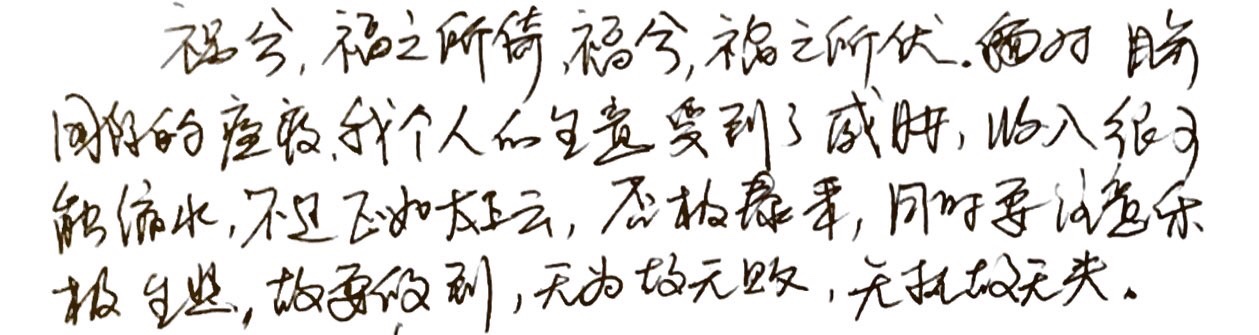 祸兮,福之所倚,福兮,祸之所伏.面对目前
国际的疫散,我个人的生意受到了威胁,收入很可
能缩水,不过正如太上云,否极泰来,同时要注意乐
极生悲,故要做到,无为故无败,无执故无失。